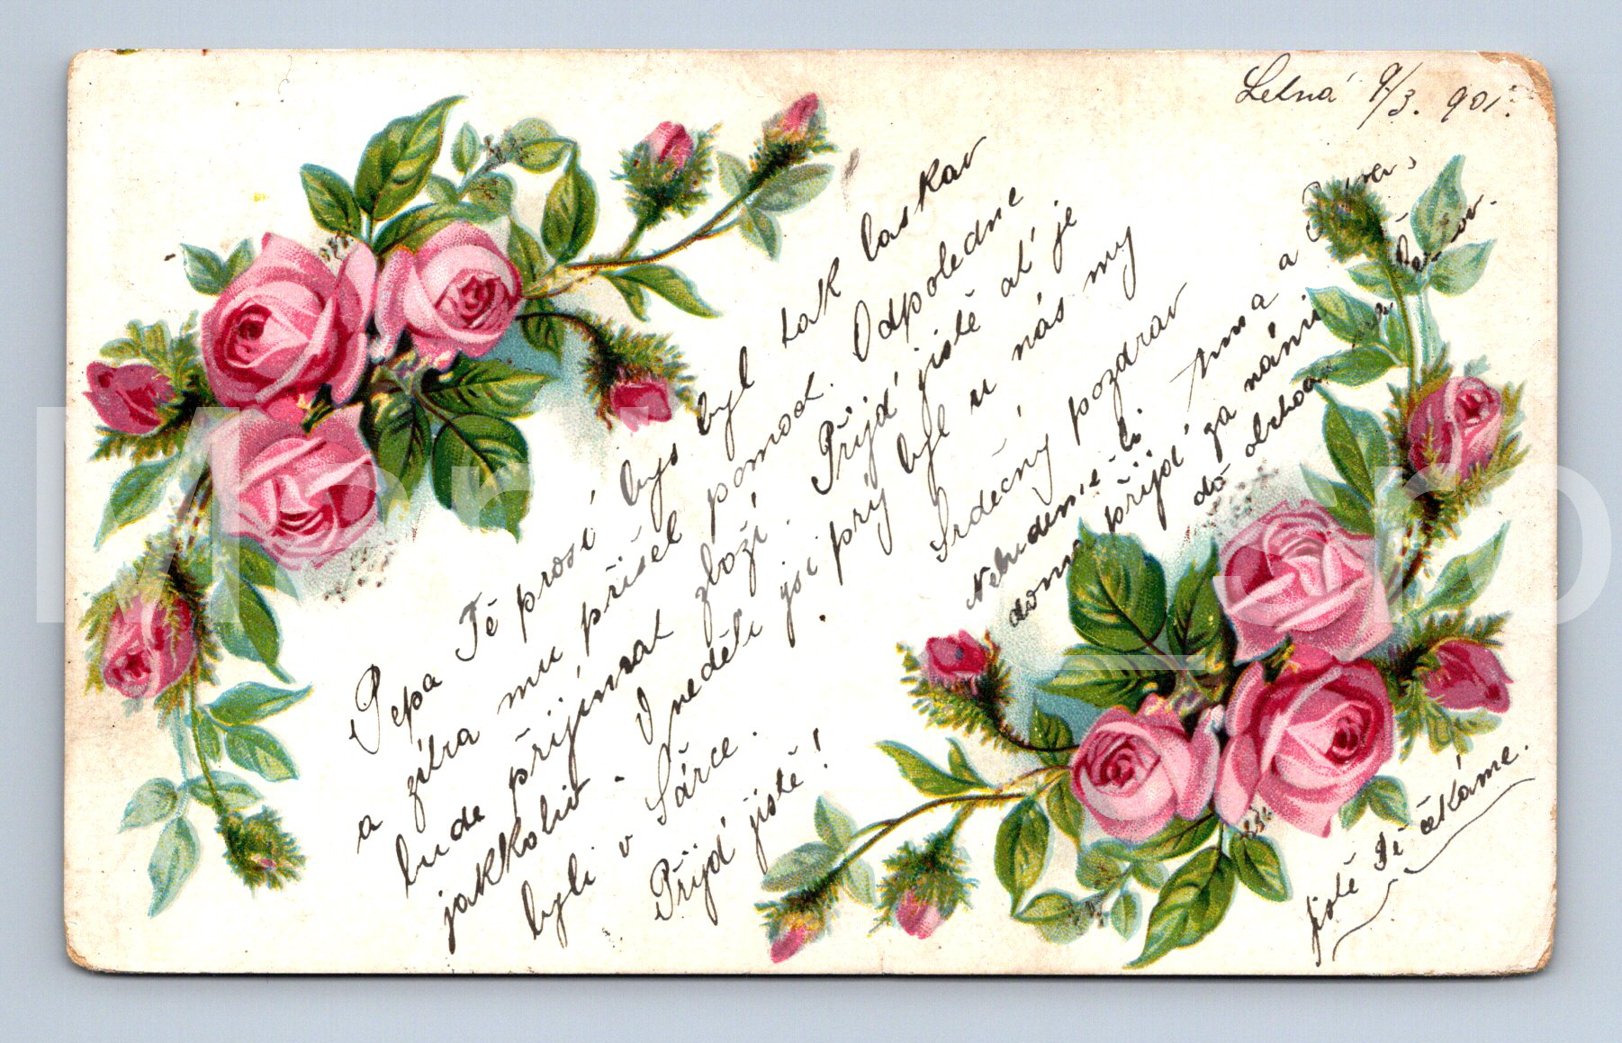 Letná 9/3. 901.
Pepa Tě prosí bys byl tak laskav
a zítra mu přišel pomoct. Odpoledne
bude přijímat zboží. Přijď jistě ať je
jakkoliv. V neděli jsi prý byl u nás my
byli v Šárce. Srdečný pozdrav
Přijď jistě! Anna a
Nebudeme-li
doma přijď za námi
do obchodu
jistě Tě čekáme.